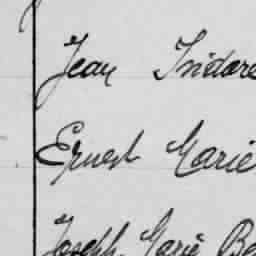 Jean Isidore
Ernest Marie
Joseph Marie Be